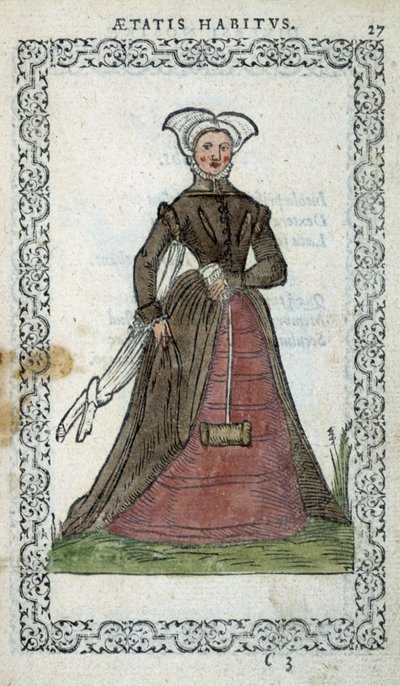 ÆTATIS HABITVS. 27
C 3